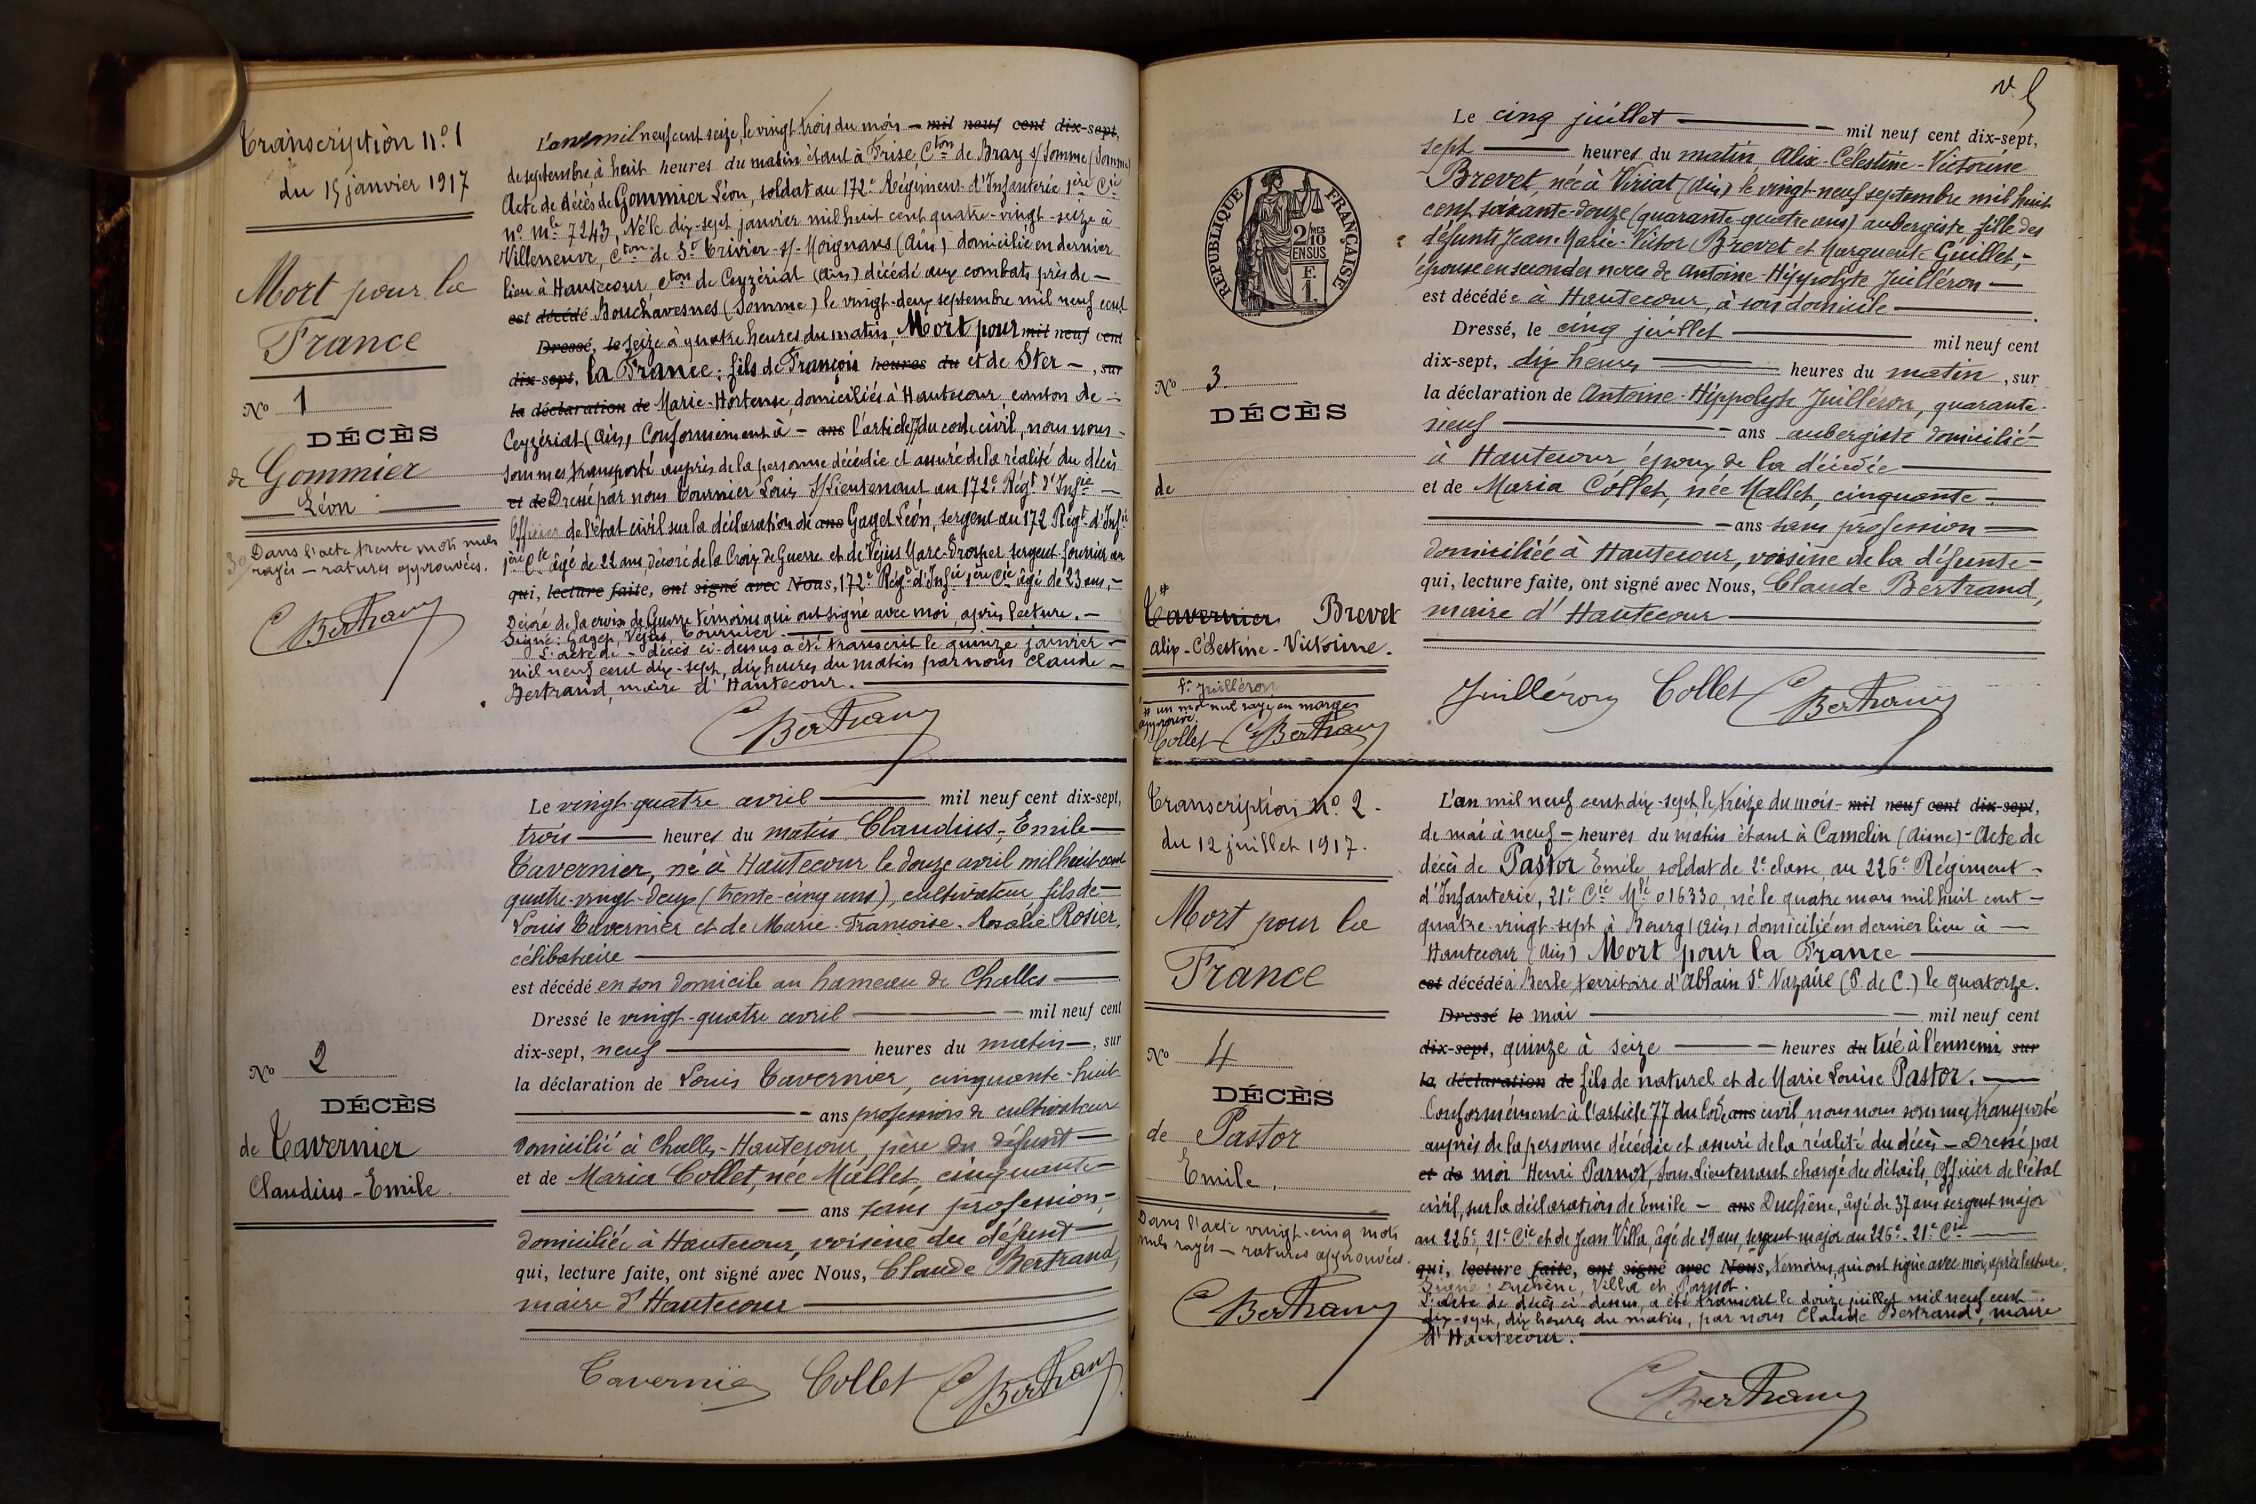 Transcription N.o 1
du 15 janvier 1917
Mort pour la
France
No 1
DÉCÈS
de Gommier
Léon
Dans l'acte trente mots nuls
rayés — ratures approuvées.
C Bertrand
L'an mil neuf cent seize, le vingt trois du mois — mil neuf cent dix-sept,
de septembre à huit heures du matin étant à Frise, Cton de Bray s/Somme (Somme)
Acte de décès de Gommier Léon, soldat au 172e Régiment d'Infanterie 1ère Cie
No Mle 7243, Né le dix-sept janvier mil huit cent quatre-vingt-seize à
Villeneuve, Cton de St Trivier-s/-Moignans (Ain) domicilié en dernier
lieu à Hautecour, Cton de Ceyzériat (Ain) décédé aux combats près de —
est décédé Bouchavesnes (Somme) le vingt-deux septembre mil neuf cent
Dressé, le seize à quatre heures du matin, Mort pour mil neuf cent
dix-sept, la France; fils de François heures du et de Ster —, sur
la déclaration de Marie-Hortense, domiciliés à Hautecour canton de —
Ceyzériat (Ain) Conformément à — ans l'article 77 du code civil, nous nous —
sommes transporté auprès de la personne décédée et assuré de la réalité du décès
et de Dressé par nous Tournier Louis S/Lieutenant au 172e Régt d'Infie —
Officier de l'état civil sur la déclaration de ans Gaget Léon, sergent au 172 Régt d'Infie
1ère Cie âgé de 22 ans, décoré de la Croix de Guerre et de Véjus Marc-Prosper sergent-fourrier au
qui, lecture faite, ont signé avec Nous, 172e Régt d'Infie 1ère Cie âgé de 23 ans, —
Décoré de la croix de Guerre témoins qui ont signé avec moi après lecture. —
Signé: Gaget, Véjus, Tournier
L'acte de décès ci-dessus a été transcrit le quinze janvier —
mil neuf cent dix-sept, dix heures du matin par nous Claude —
Bertrand, maire d'Hautecour.
C Bertrand
No 2
DÉCÈS
de Tavernier
Claudius-Emile
Le vingt-quatre avril mil neuf cent dix-sept,
trois heures du matin Claudius-Emile
Tavernier, né à Hautecour le douze avril mil huit cent
quatre-vingt-deux (trente-cinq ans), cultivateur fils de —
Louis Tavernier et de Marie-Françoise-Rosalie Rosier,
célibataire
est décédé en son domicile au hameau de Challes
Dressé le vingt-quatre avril mil neuf cent
dix-sept, neuf heures du matin —, sur
la déclaration de Louis Tavernier, cinquante-huit
ans profession de cultivateur
domicilié à Challes-Hautecour, père du défunt —
et de Maria Collet, née Mallet, cinquante —
ans sans profession, —
domiciliée à Hautecour, voisine du défunt —
qui, lecture faite, ont signé avec Nous, Claude Bertrand,
maire d'Hautecour
Tavernier Collet C Bertrand
RÉPUBLIQUE FRANÇAISE
2/10 MES EN SUS
F.
1.
No 3
DÉCÈS
de
* Tavernier Brevet
Alix-Célestine-Victoine.
fe Juilléron
* un mot nul rayé en marge
approuvé.
Collet C Bertrand
Le cinq juillet mil neuf cent dix-sept,
sept heures du matin Alix-Célestine-Victorine
Brevet, née à Viriat (Ain) le vingt-neuf septembre mil huit
cent soixante-douze (quarante-quatre ans) aubergiste fille des
défunts Jean-Marie-Victor Brevet et Marguerite Guillet, —
épouse en secondes noces de Antoine-Hippolyte Juilléron —
est décédée à Hautecour, à son domicile
Dressé, le cinq juillet mil neuf cent
dix-sept, dix heures heures du matin, sur
la déclaration de Antoine-Hippolyte Juilléron, quarante-
neuf ans aubergiste domicilié —
à Hautecour époux de la décédée
et de Maria Collet, née Mallet, cinquante —
— ans sans profession —
domiciliée à Hautecour, voisine de la défunte —
qui, lecture faite, ont signé avec Nous, Claude Bertrand,
maire d'Hautecour
Juilléron Collet C Bertrand
Transcription No. 2 —
du 12 juillet 1917.
Mort pour la
France
No 4
DÉCÈS
de Pastor
Emile.
Dans l'acte vingt-cinq mots
nuls rayés — ratures approuvées.
C Bertrand
L'an mil neuf cent dix-sept, le treize du mois — mil neuf cent dix-sept,
de mai à neuf — heures du matin étant à Camelin (Aisne) — Acte de
décès de Pastor Emile soldat de 2e classe au 226e Régiment —
d'Infanterie, 21e Cie Mle 016330, né le quatre mars mil huit cent —
quatre-vingt-sept à Bourg (Ain) domicilié en dernier lieu à —
Hautecour (Ain) Mort pour la France
est décédé à Berle territoire d'Ablain St Nazaire (P. de C.) le quatorze.
Dressé le mai mil neuf cent
dix-sept, quinze à seize heures du tué à l'ennemi sur
la déclaration de fils de naturel et de Marie Louise Pastor. —
Conformément à l'article 77 du Code ans civil, nous nous sommes transporté
auprès de la personne décédée et assuré de la réalité du décès — Dressé par
et de moi Henri Parnot, Sous-lieutenant chargé des détails, Officier de l'état
civil, sur la déclaration de Emile — ans Duchêne, âgé de 37 ans sergent major
au 226e, 21e Cie et de Jean Villa, âgé de 29 ans, sergent major au 226e - 21e Cie
qui, lecture faite, ont signé avec Nous, témoins, qui ont signé avec moi, après lecture.
Signé: Duchêne, Villa et Parnot.
L'acte de décès ci-dessus, a été transcrit le douze juillet mil neuf cent —
dix-sept, dix heures du matin, par nous Claude Bertrand, maire
d'Hautecour.
C Bertrand